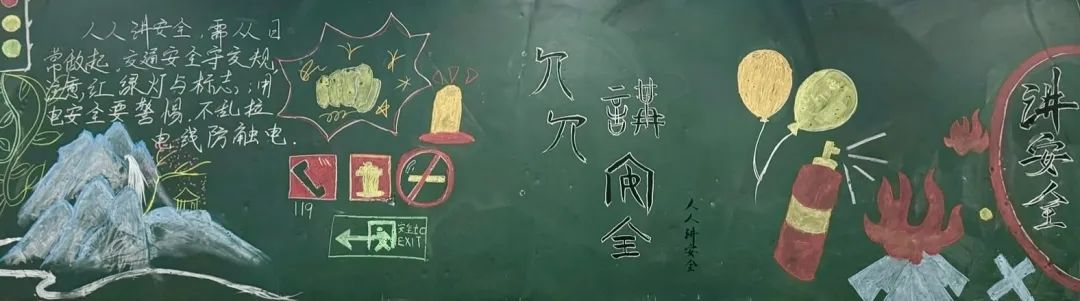 人人讲安全，需从日
常做起，交通安全守交规，
注意红绿灯与标志，；用
电安全要警惕，不乱拉
电线防触电.
119
安全
EXIT
講安全
人人讲安全
讲安全